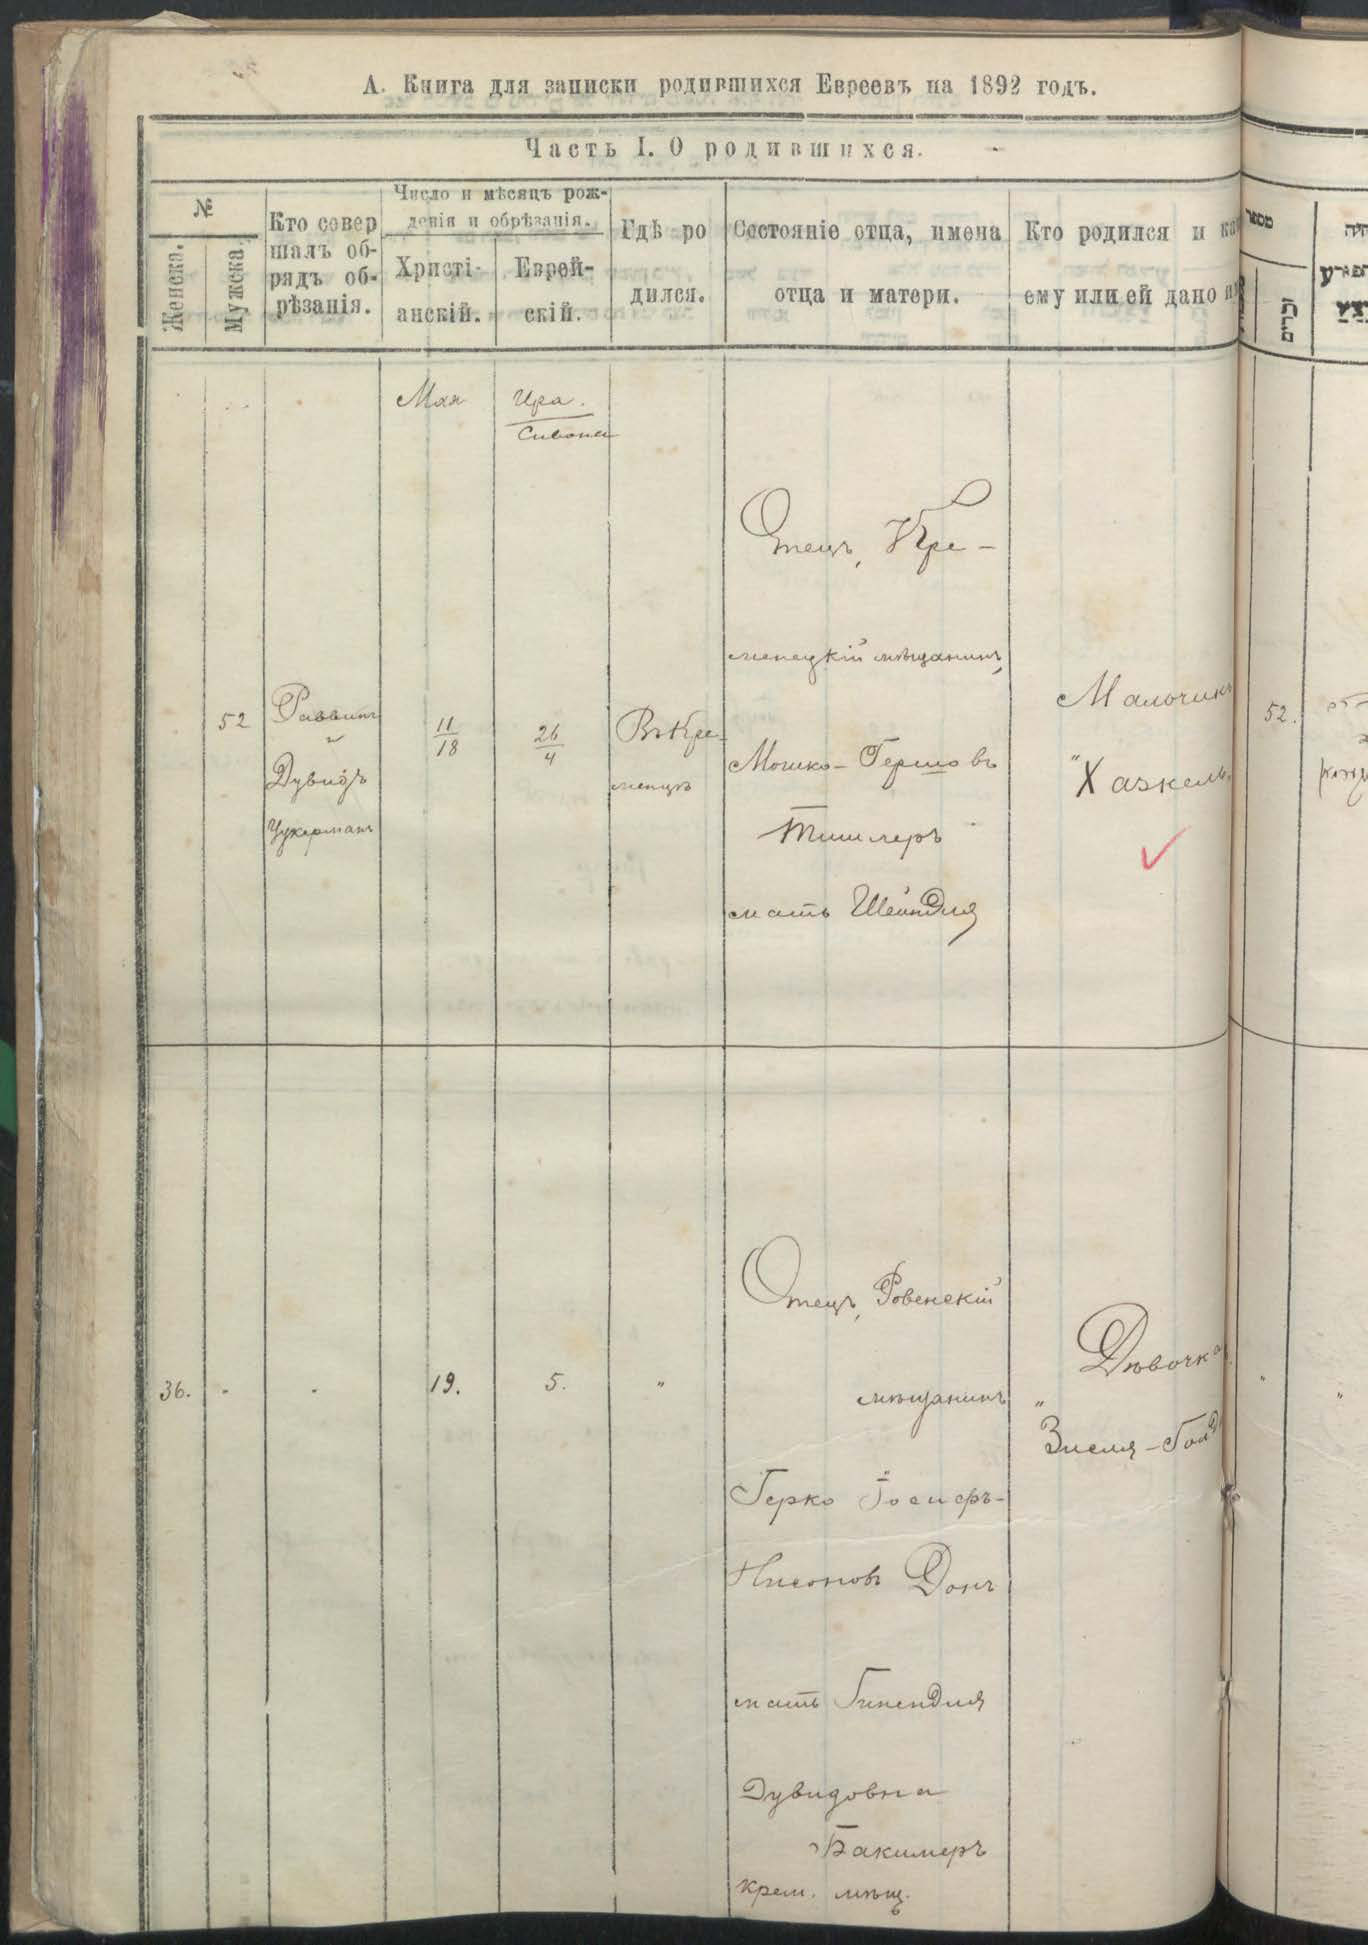 А. Книга для записки родившихся Евреевъ на 1892 годъ.
Часть I. О родившихся.
№
Женска.
Мужска
Кто совер
шалъ об-
рядъ об-
рѣзанія.
Число и мѣсяцъ рож-
денія и обрѣзанія.
Христі-
анскій.
Еврей-
скій.
Гдѣ ро
дился.
Состояніе отца, имена
отца и матери.
Кто родился и ка
ему или ей дано и
מספר
זכרים
Мая
Ира.
Сивона
52
Раввинъ
и
Дувидъ
Цукерманъ
11
18
26
4
Въ Кре-
менцѣ
Отецъ, Кре-
менецкій мѣщанинъ,
Мошко-Гершовъ
Тишлеръ
мать Шейндля
Мальчикъ
"Хаскель"
52.
36.
19.
5.
"
Отецъ, Ровенскій
мѣщанинъ
Герко Іосифъ-
Нисоновъ Донъ
мать Гинендля
Дувидовна
Бакимеръ
крем. мѣщ.
Дѣвочка
"
Зисля-Гол